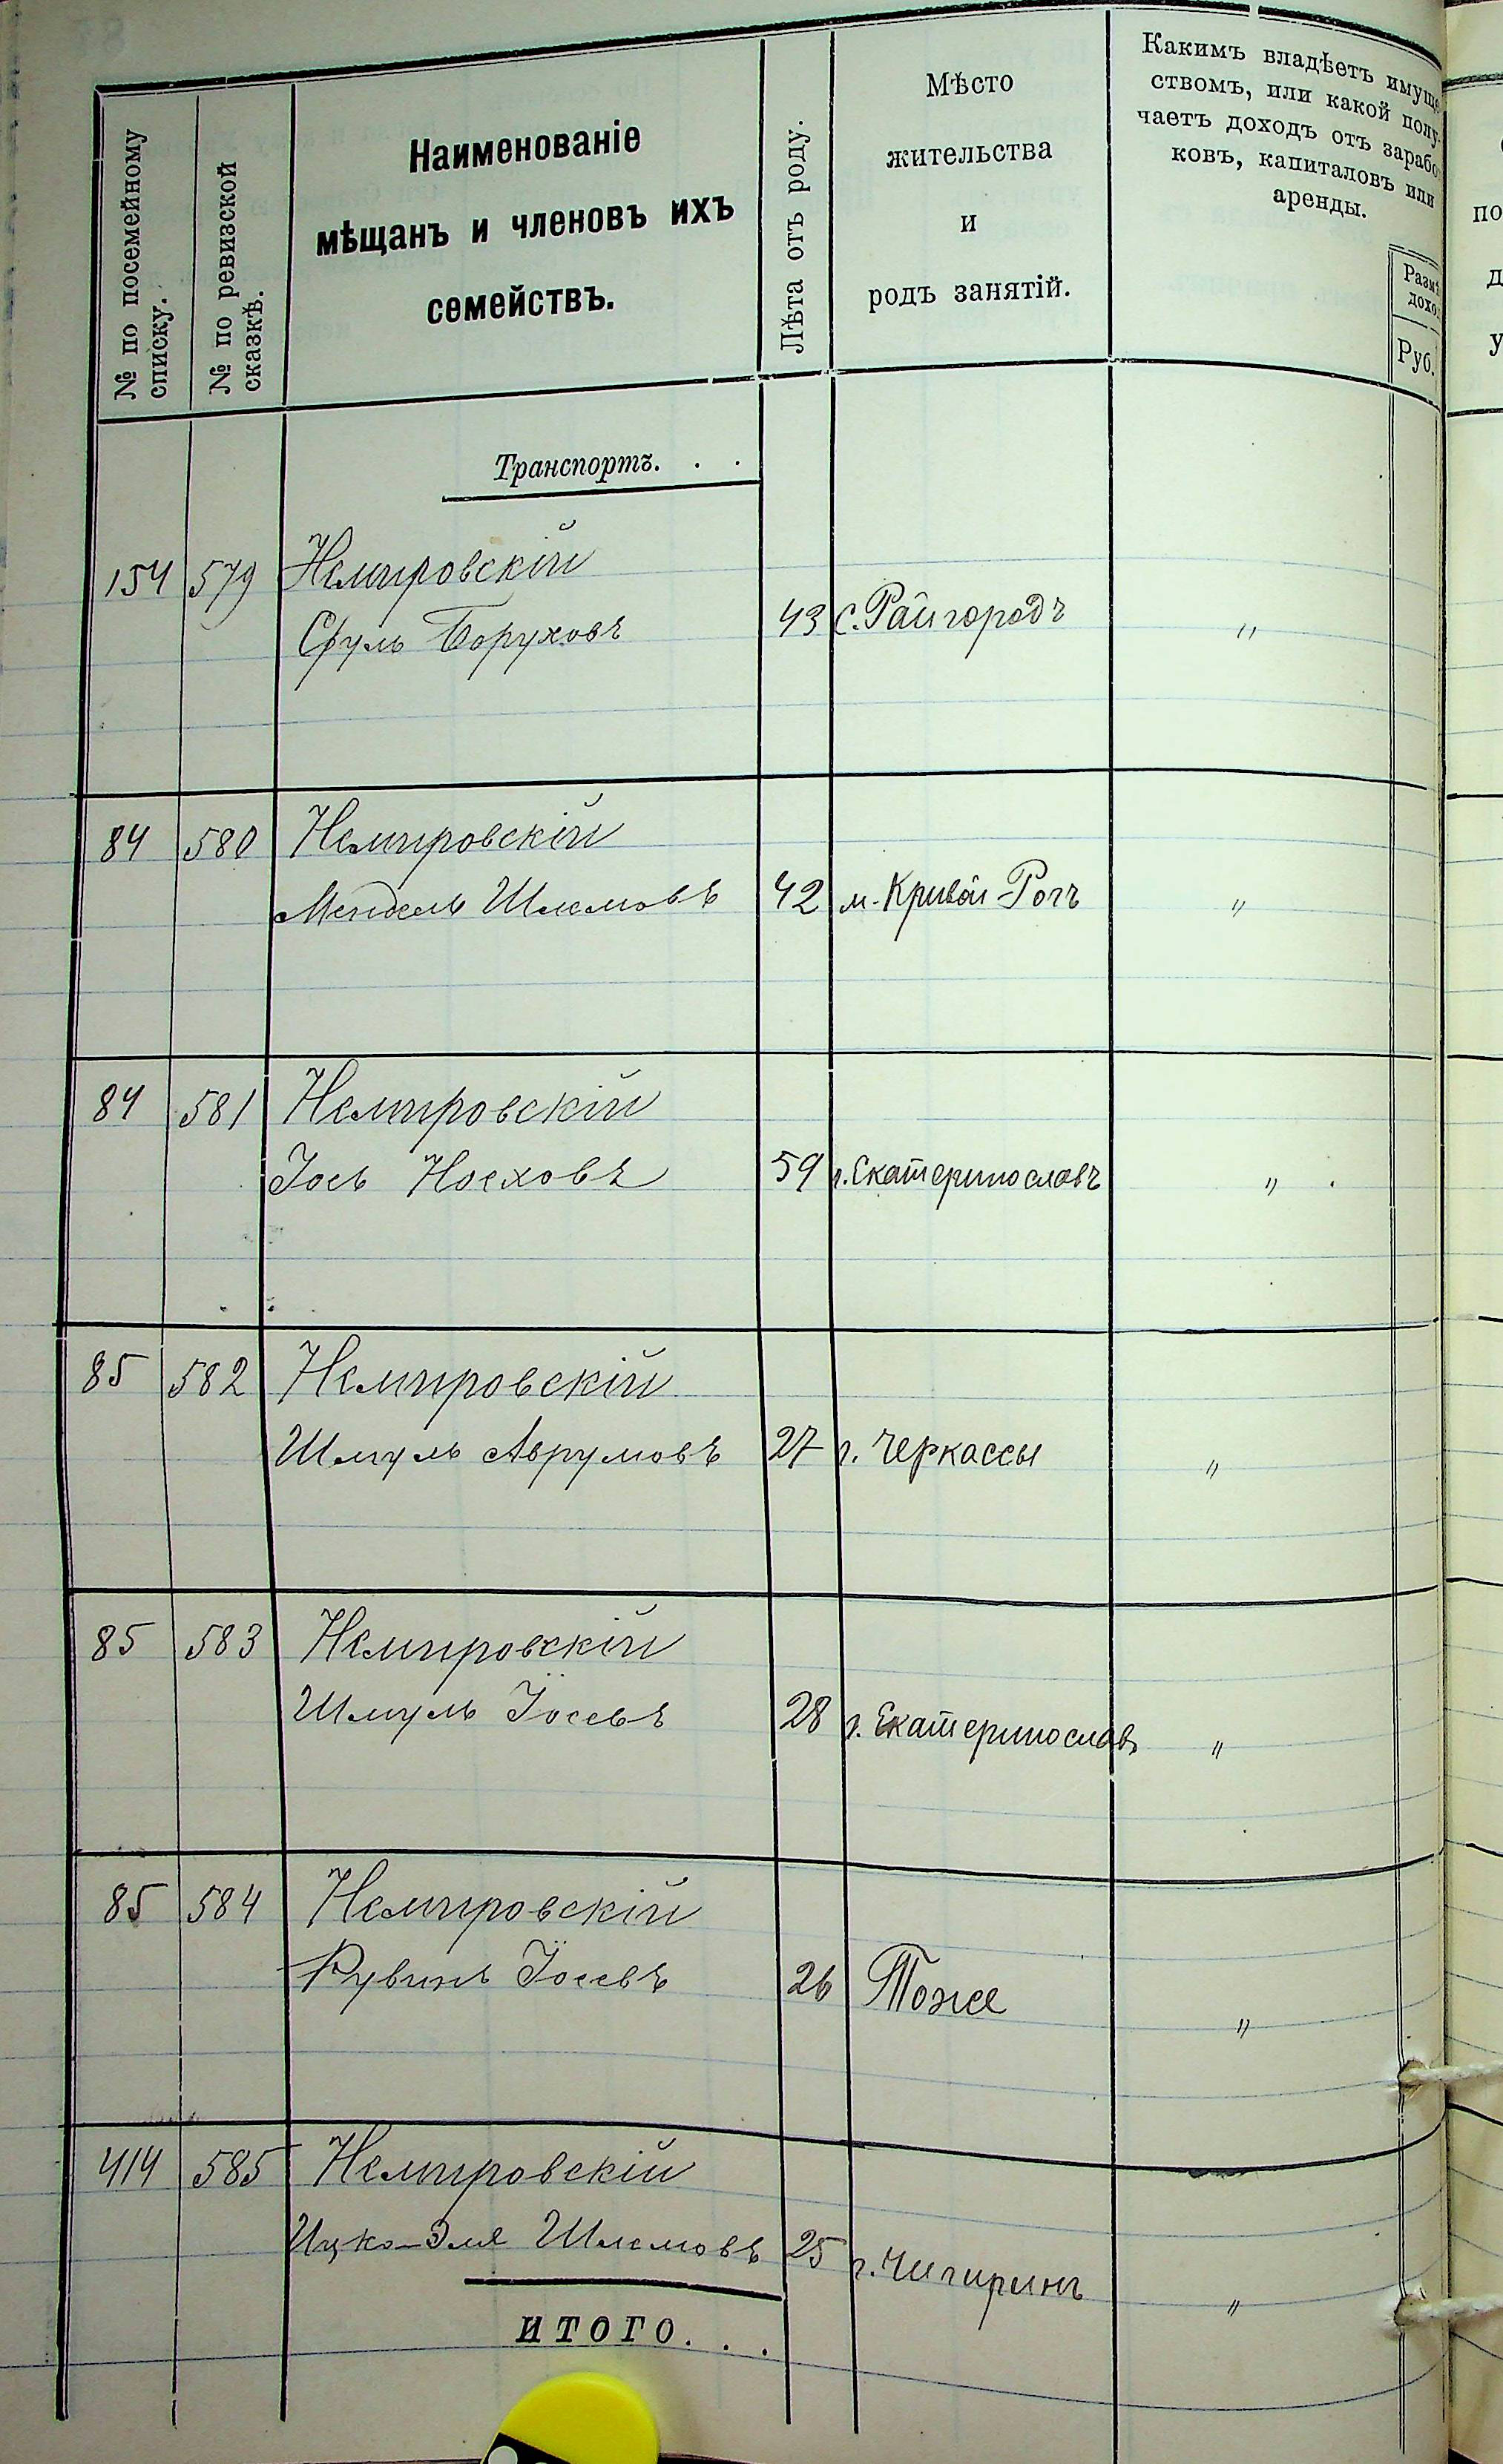 № по посемейному
списку.
№ по ревизской
сказкѣ.
Наименованіе
мѣщанъ и членовъ ихъ
семействъ.
Лѣта отъ роду.
Мѣсто
жительства
и
родъ занятій.
Какимъ владѣетъ имуще
ствомъ, или какой полу-
чаетъ доходъ отъ зарабо
ковъ, капиталовъ или
аренды.
Размѣ
дохо
Руб.
Транспортъ. . .
154 579 Немировскій
Сруль Боруховъ 43 с. Райгородъ "
84 580 Немировскій
Мендель Шлемовъ 42 м. Кривой-Рогъ "
84 581 Немировскій
Іось Носховъ 59 г. Екатеринославъ "
85 582 Немировскій
Шмуль Аврумовъ 27 г. Черкассы "
85 583 Немировскій
Шмуль Іосевъ 28 г. Екатеринославъ "
85 584 Немировскій
Рувинъ Іосевъ 26 Тоже "
414 585 Немировскій
Ицко-Эля Шлемовъ 25 г. Чигиринъ "
ИТОГО. . .
по
д
у